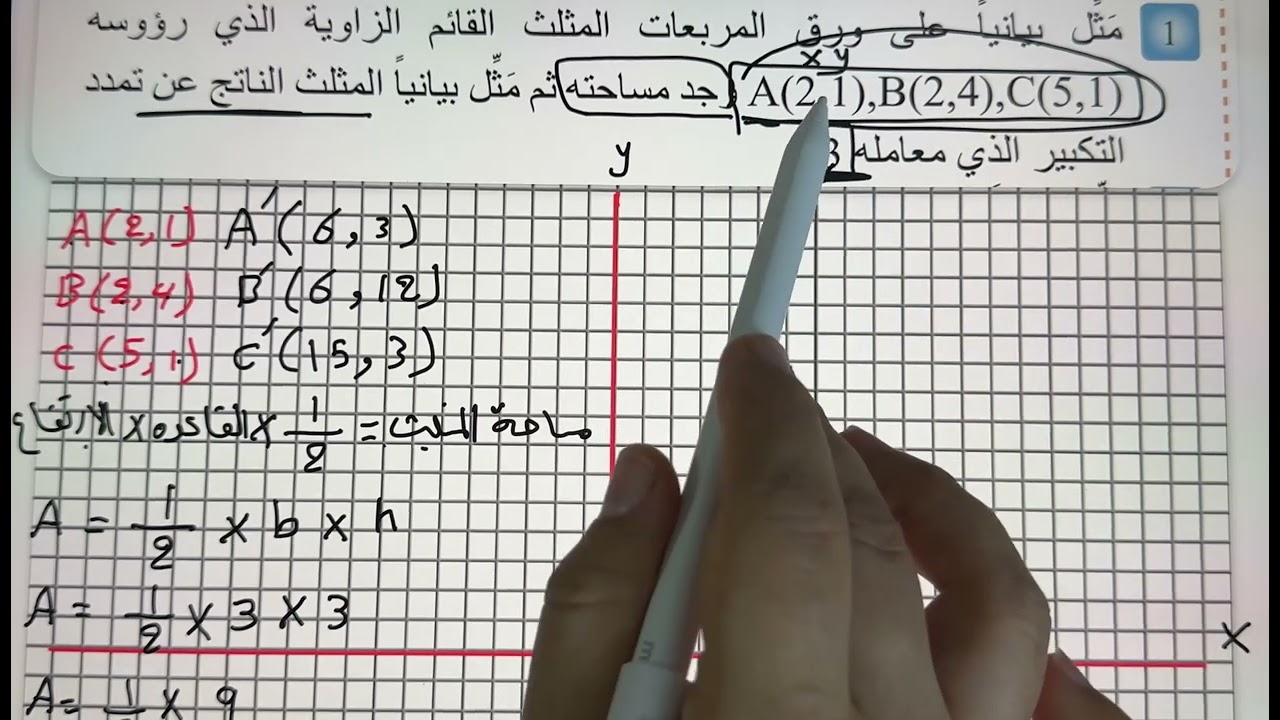 1 مَثِّل بيانياً على ورق المربعات المثلث القائم الزاوية الذي رؤوسه
x y
A(2,1),B(2,4),C(5,1) جد مساحته ثم مَثِّل بيانياً المثلث الناتج عن تمدد
التكبير الذي معامله 3
y
A(2,1) A′(6,3)
B(2,4) B′(6,12)
C(5,1) C′(15,3)
مساحة المثلث = 1/2 × القاعده × الارتفاع
A = 1/2 × b × h
A = 1/2 × 3 × 3
x